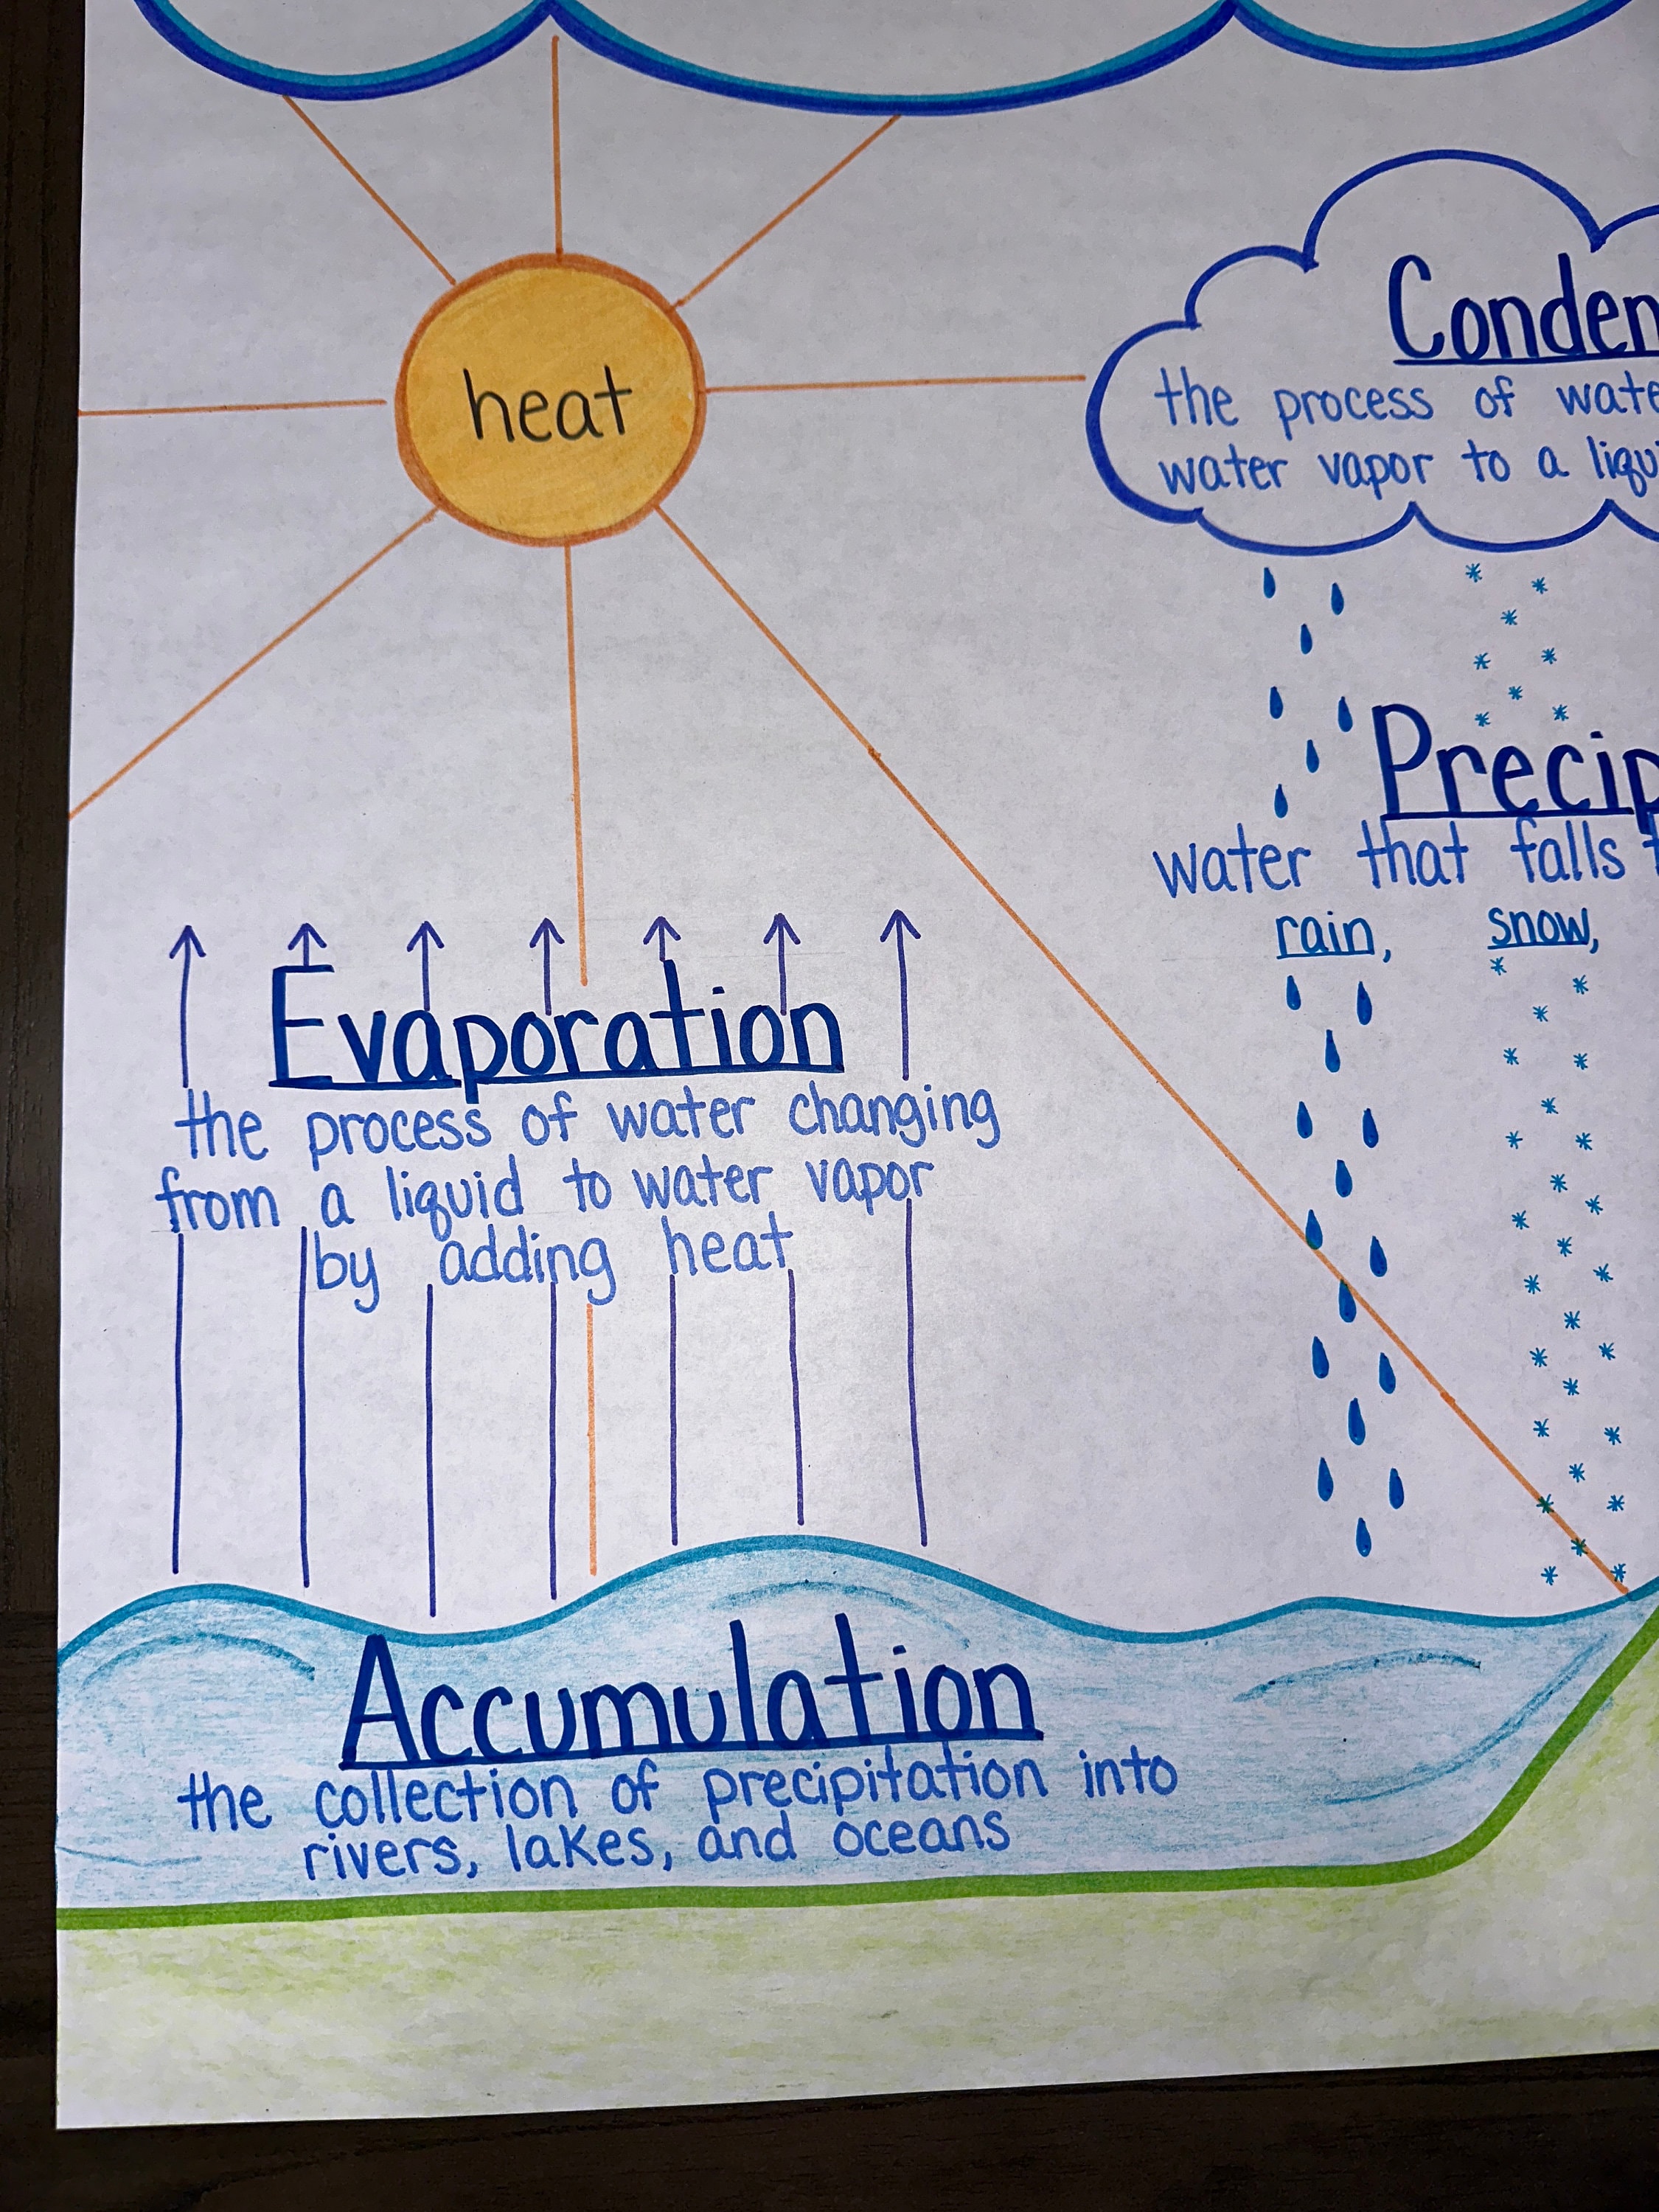 heat
the process of
water vapor to a
water that falls
rain, snow,
Evaporation
the process of water changing
from a liquid to water vapor
by adding heat
Accumulation
the collection of precipitation into
rivers, lakes, and oceans